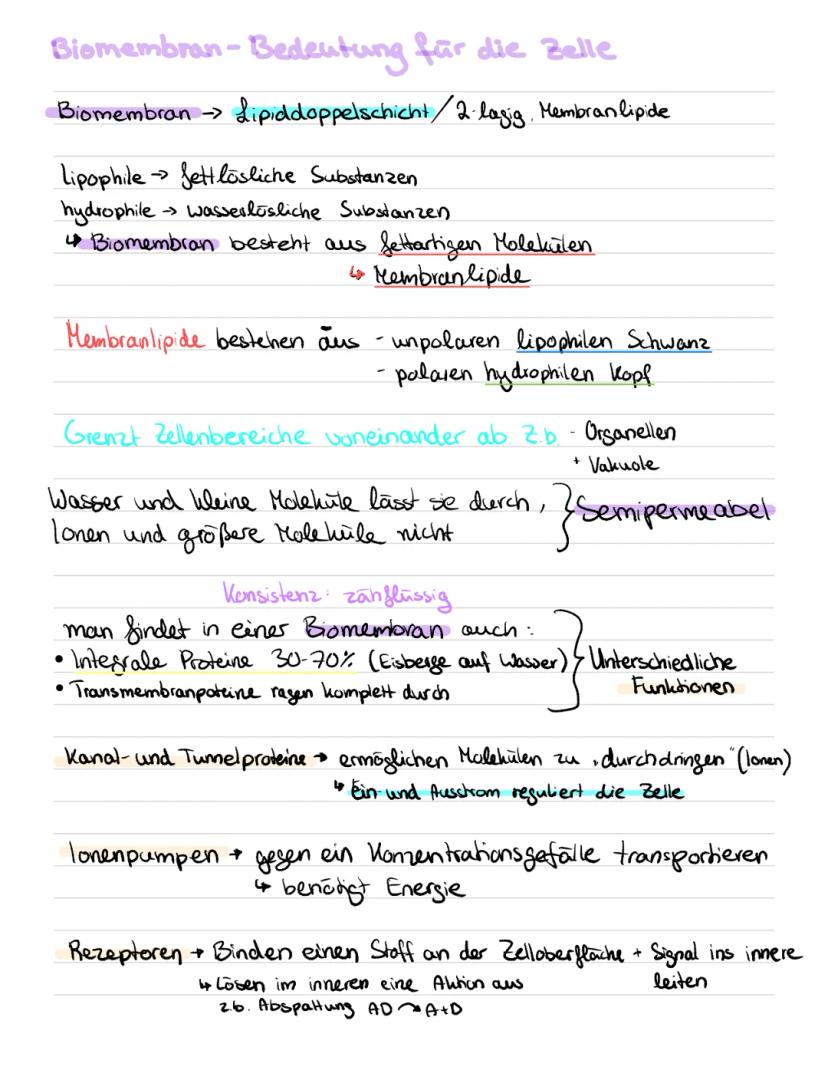 Biomembran - Bedeutung für die Zelle
Biomembran → Lipiddoppelschicht / 2-lagig, Membranlipide
lipophile → fettlösliche Substanzen
hydrophile → wasserlösliche Substanzen
↳ Biomembran besteht aus fettartigen Molekülen
↳ Membranlipide
Membranlipide bestehen aus - unpolaren lipophilen Schwanz
- polaren hydrophilen Kopf
Grenzt Zellenbereiche voneinander ab z.b. - Organellen
+ Vakuole
Wasser und kleine Moleküle lässt sie durch, } Semipermeabel
Ionen und größere Moleküle nicht
Konsistenz: zähflüssig
man findet in einer Biomembran auch:
• Integrale Proteine 30-70% (Eisberge auf Wasser) } Unterschiedliche
• Transmembranpoteine ragen komplett durch Funktionen
Kanal- und Tunnelproteine → ermöglichen Molekülen zu „durchdringen" (Ionen)
↳ Ein- und Ausstrom reguliert die Zelle
Ionenpumpen → gegen ein Konzentrationsgefälle transportieren
↳ benötigt Energie
Rezeptoren → Binden einen Stoff an der Zelloberfläche + Signal ins innere
↳ Lösen im inneren eine Aktion aus leiten
z.b. Abspaltung AD ↷ A+D